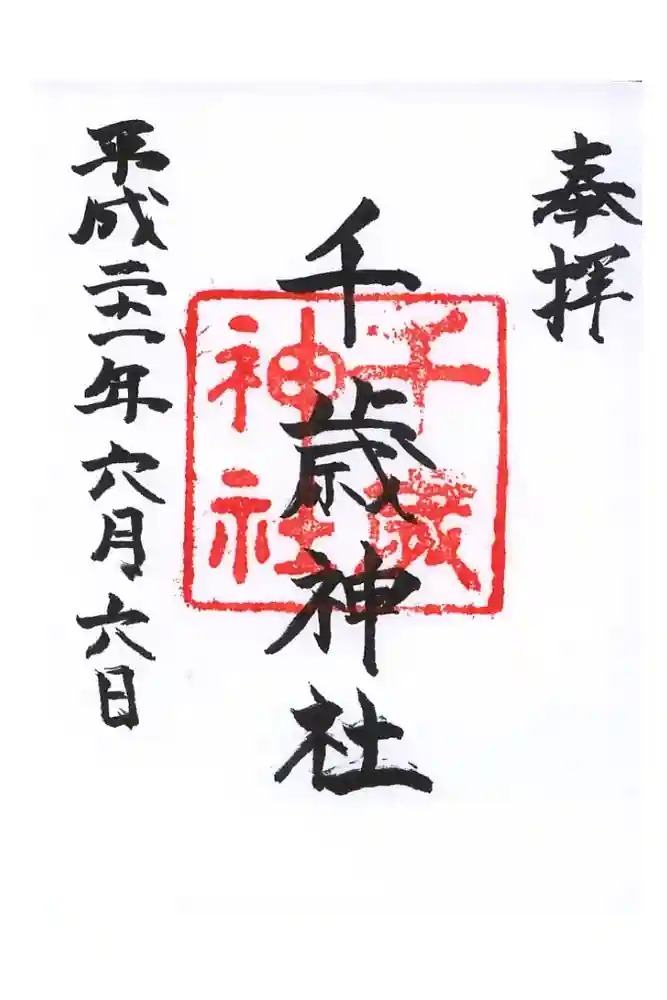 奉拝
千歳神社
平成二十一年六月六日
千歳
神社